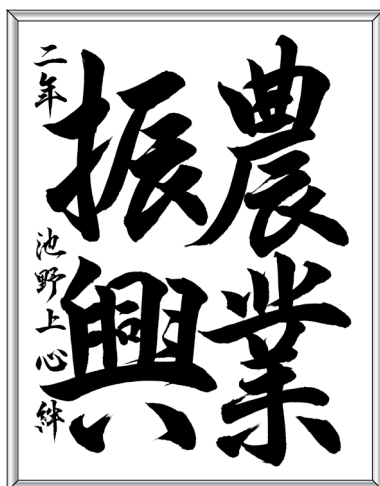 農業
振興
二年 池野上心絆